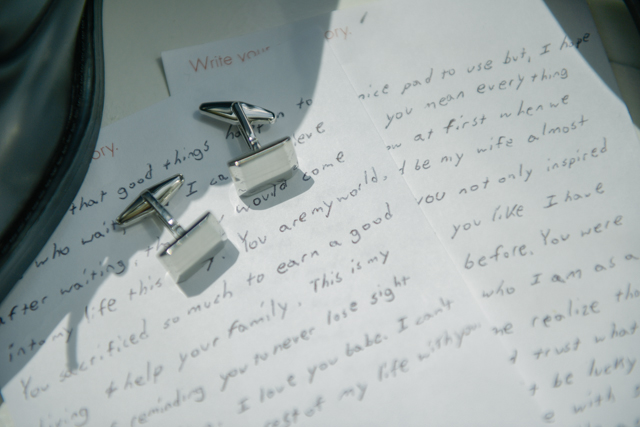 Write your
ory.
ory.
that good things happen to
who wait
I ca
ieve
would come
after waiting
You are my world,
into my life this
You sacrificed so much to earn a good
living & help your family. This is my
reminding you to never lose sight
I love you babe. I can't
rest of my life with you
nice pad to use but, I hope
you mean everything
at first when we
be my wife almost
you not only inspired
you like I have
before. You were
who I am as a
me realize tha
trust what
be lucky
e with s